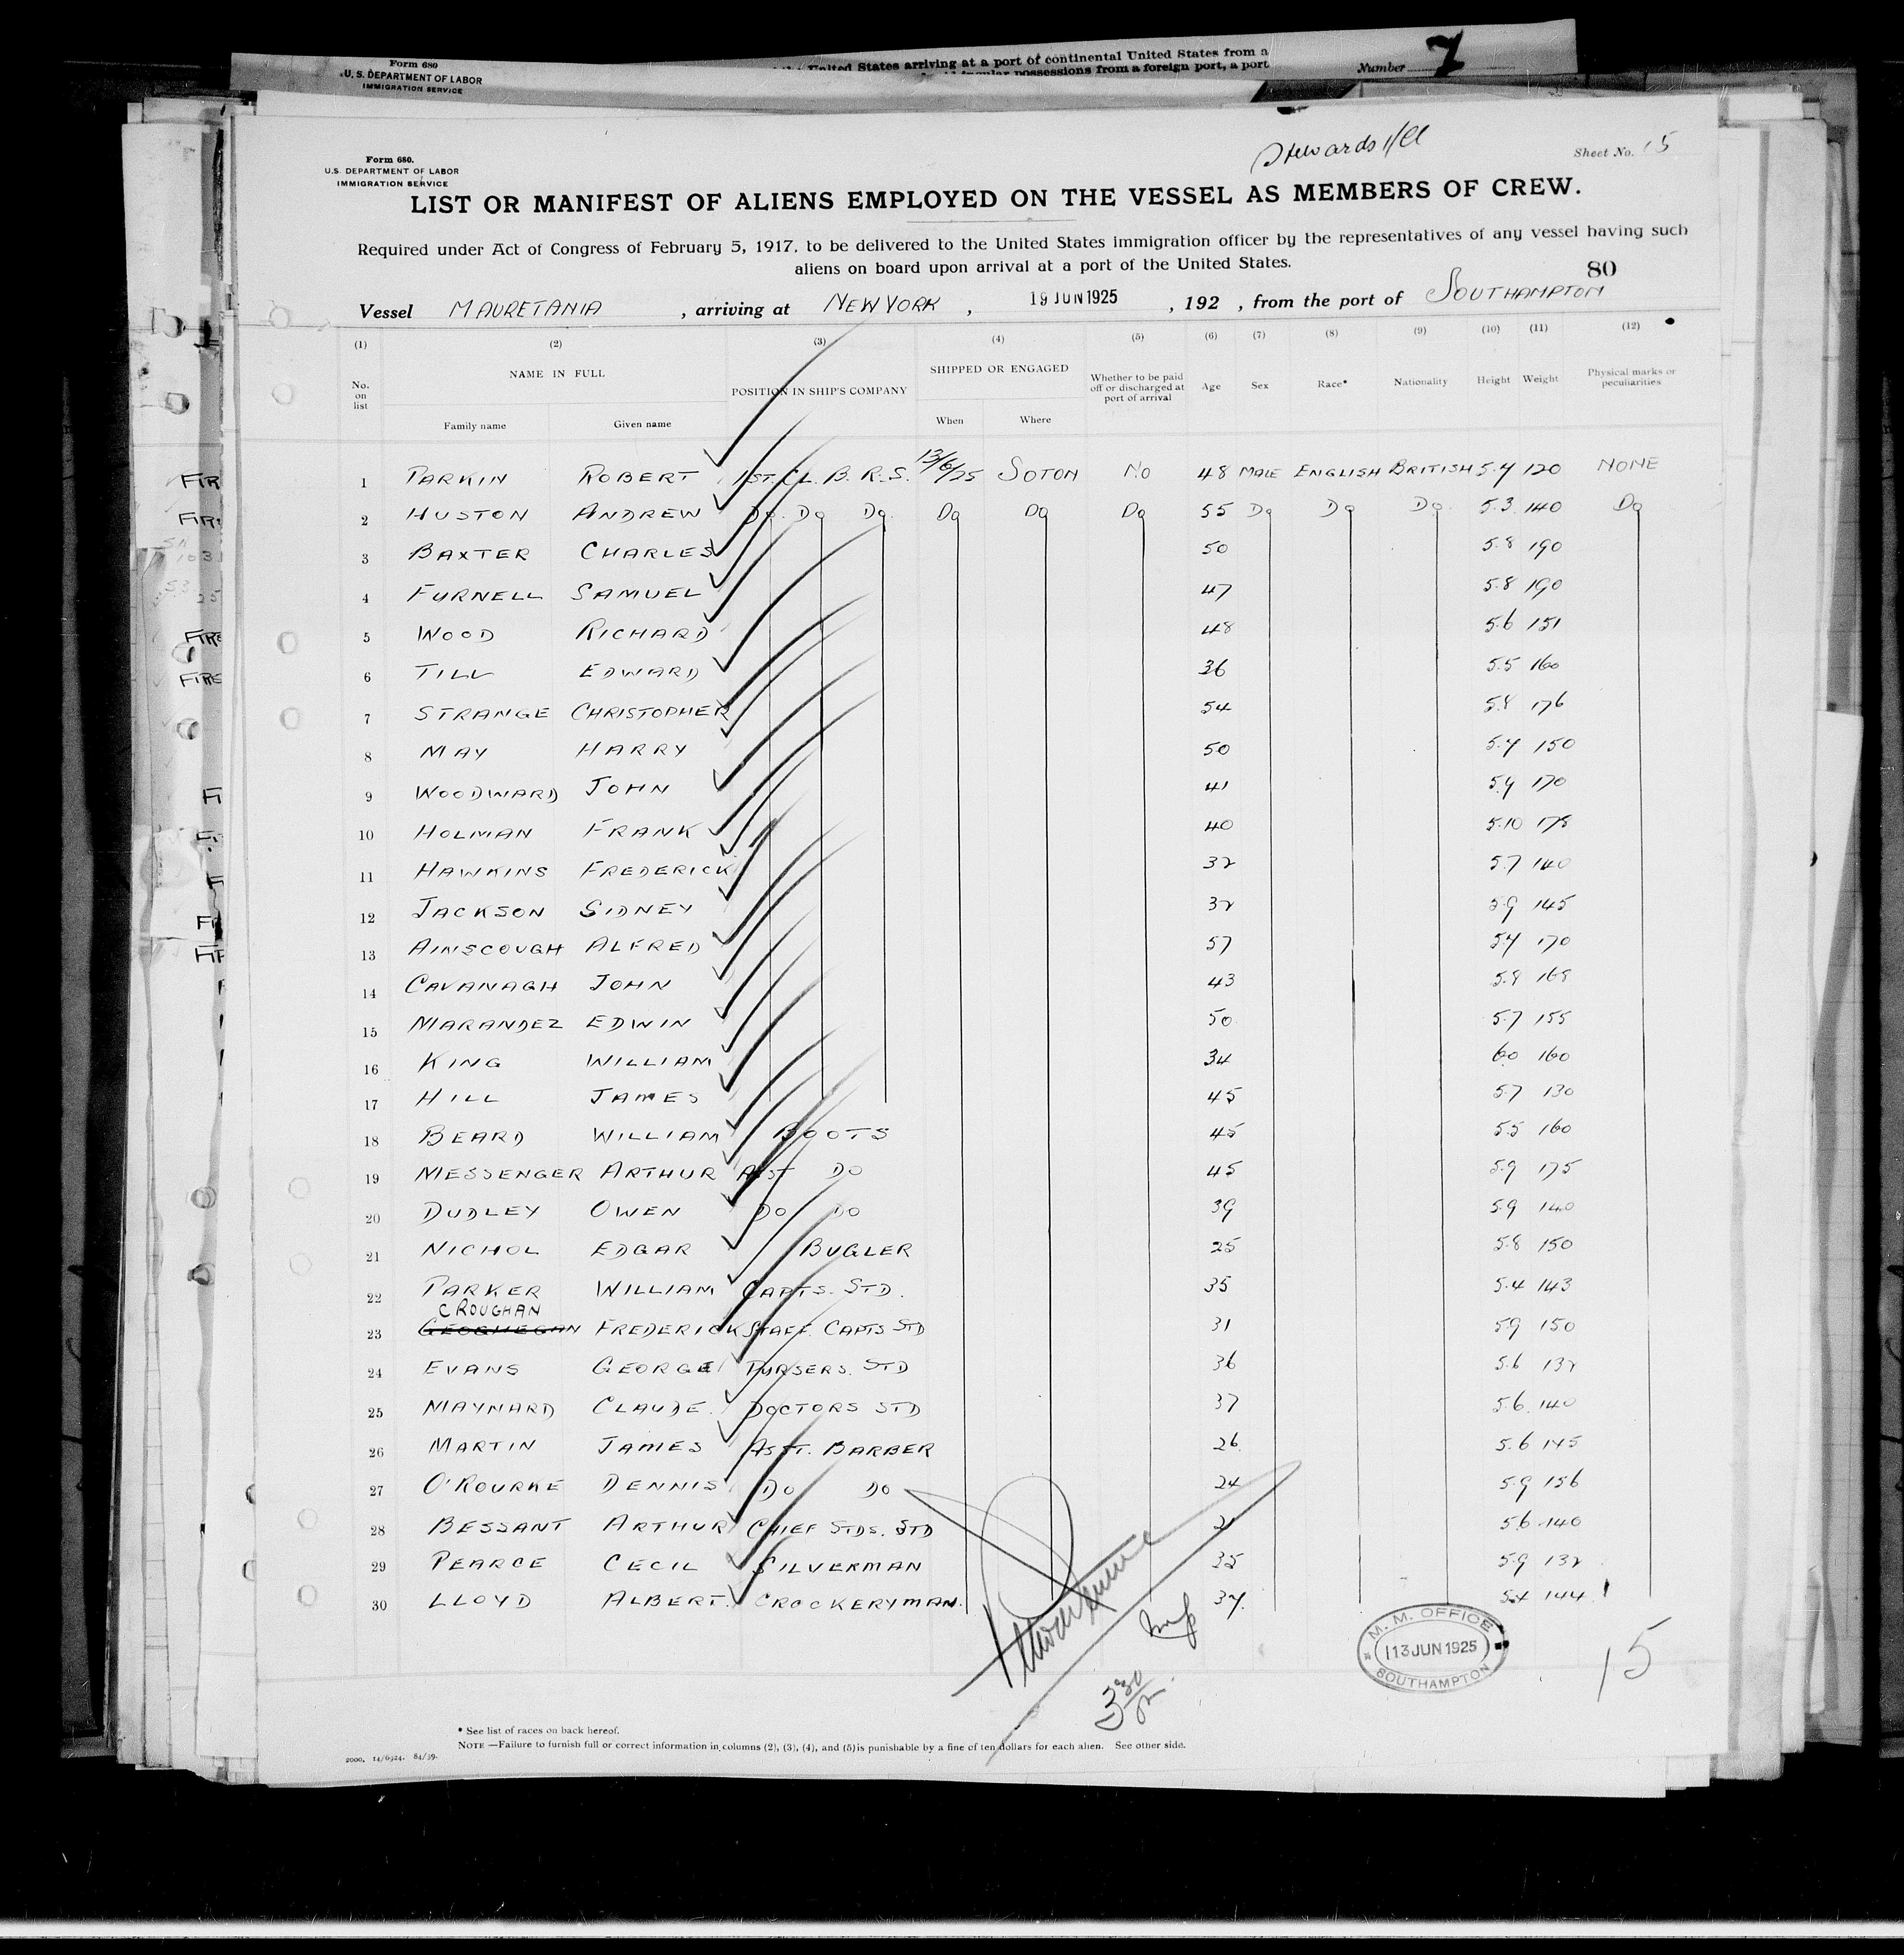 Form 680
U. S. DEPARTMENT OF LABOR
IMMIGRATION SERVICE
United States arriving at a port of continental United States from a
possessions from a foreign port, a port
Number 7
Stewards
Sheet No. 15
Form 680.
U.S. DEPARTMENT OF LABOR
IMMIGRATION SERVICE
LIST OR MANIFEST OF ALIENS EMPLOYED ON THE VESSEL AS MEMBERS OF CREW.
Required under Act of Congress of February 5, 1917, to be delivered to the United States immigration officer by the representatives of any vessel having such
aliens on board upon arrival at a port of the United States.
80
Vessel MAURETANIA, arriving at NEW YORK, 19 JUN 1925, 192 , from the port of SOUTHAMPTON
(1) (2) (3) (4) (5) (6) (7) (8) (9) (10) (11) (12)
No. on list NAME IN FULL POSITION IN SHIP'S COMPANY SHIPPED OR ENGAGED Whether to be paid off or discharged at port of arrival Age Sex Race* Nationality Height Weight Physical marks or peculiarities
Family name Given name When Where
1 PARKIN ROBERT 1ST. CL. B. R. S. 13/6/25 SOTON NO 48 MALE ENGLISH BRITISH 5.4 120 NONE
2 HUSTON ANDREW Do Do Do Do Do Do 55 Do Do Do 5.3. 140 Do
3 BAXTER CHARLES 50 5.8 190
4 FURNELL SAMUEL 47 5.8 190
5 WOOD RICHARD 48 5.6 151
6 TILL EDWARD 36 5.5 160
7 STRANGE CHRISTOPHER 54 5.8 176
8 MAY HARRY 50 5.4 150
9 WOODWARD JOHN 41 5.9 170
10 HOLMAN FRANK 40 5.10 178
11 HAWKINS FREDERICK 32 5.7 140
12 JACKSON SIDNEY 32 5.9 145
13 AINSCOUGH ALFRED 57 5.4 170
14 CAVANAGH JOHN 43 5.8 168
15 MARANDEZ EDWIN 50 5.7 155
16 KING WILLIAM 34 6.0 160
17 HILL JAMES 45 5.7 130
18 BEARD WILLIAM BOOTS 45 5.5 160
19 MESSENGER ARTHUR ASST DO 45 5.9 175
20 DUDLEY OWEN DO DO 39 5.9 140
21 NICHOL EDGAR BUGLER 25 5.8 150
22 PARKER WILLIAM CAPTS. STD. 35 5.4 143
CROUGHAN
23 GEOGHEGAN FREDERICK STAFF. CAPTS STD 31 5.9 150
24 EVANS GEORGE PURSERS. STD 36 5.6 132
25 MAYNARD CLAUDE. DOCTORS STD 37 5.6. 140
26 MARTIN JAMES ASST. BARBER 26 5.6 145
27 O'ROURKE DENNIS DO DO 24 5.9 156
28 BESSANT ARTHUR CHIEF STDS. STD 5.6 140
29 PEARCE CECIL SILVERMAN 35 5.9 132
30 LLOYD ALBERT. CROCKERYMAN. 37. 5.4 144
M. M. OFFICE
13 JUN 1925
SOUTHAMPTON
15
* See list of races on back hereof.
NOTE —Failure to furnish full or correct information in columns (2), (3), (4), and (5) is punishable by a fine of ten dollars for each alien. See other side.
2000. 14/6924. 84/39.